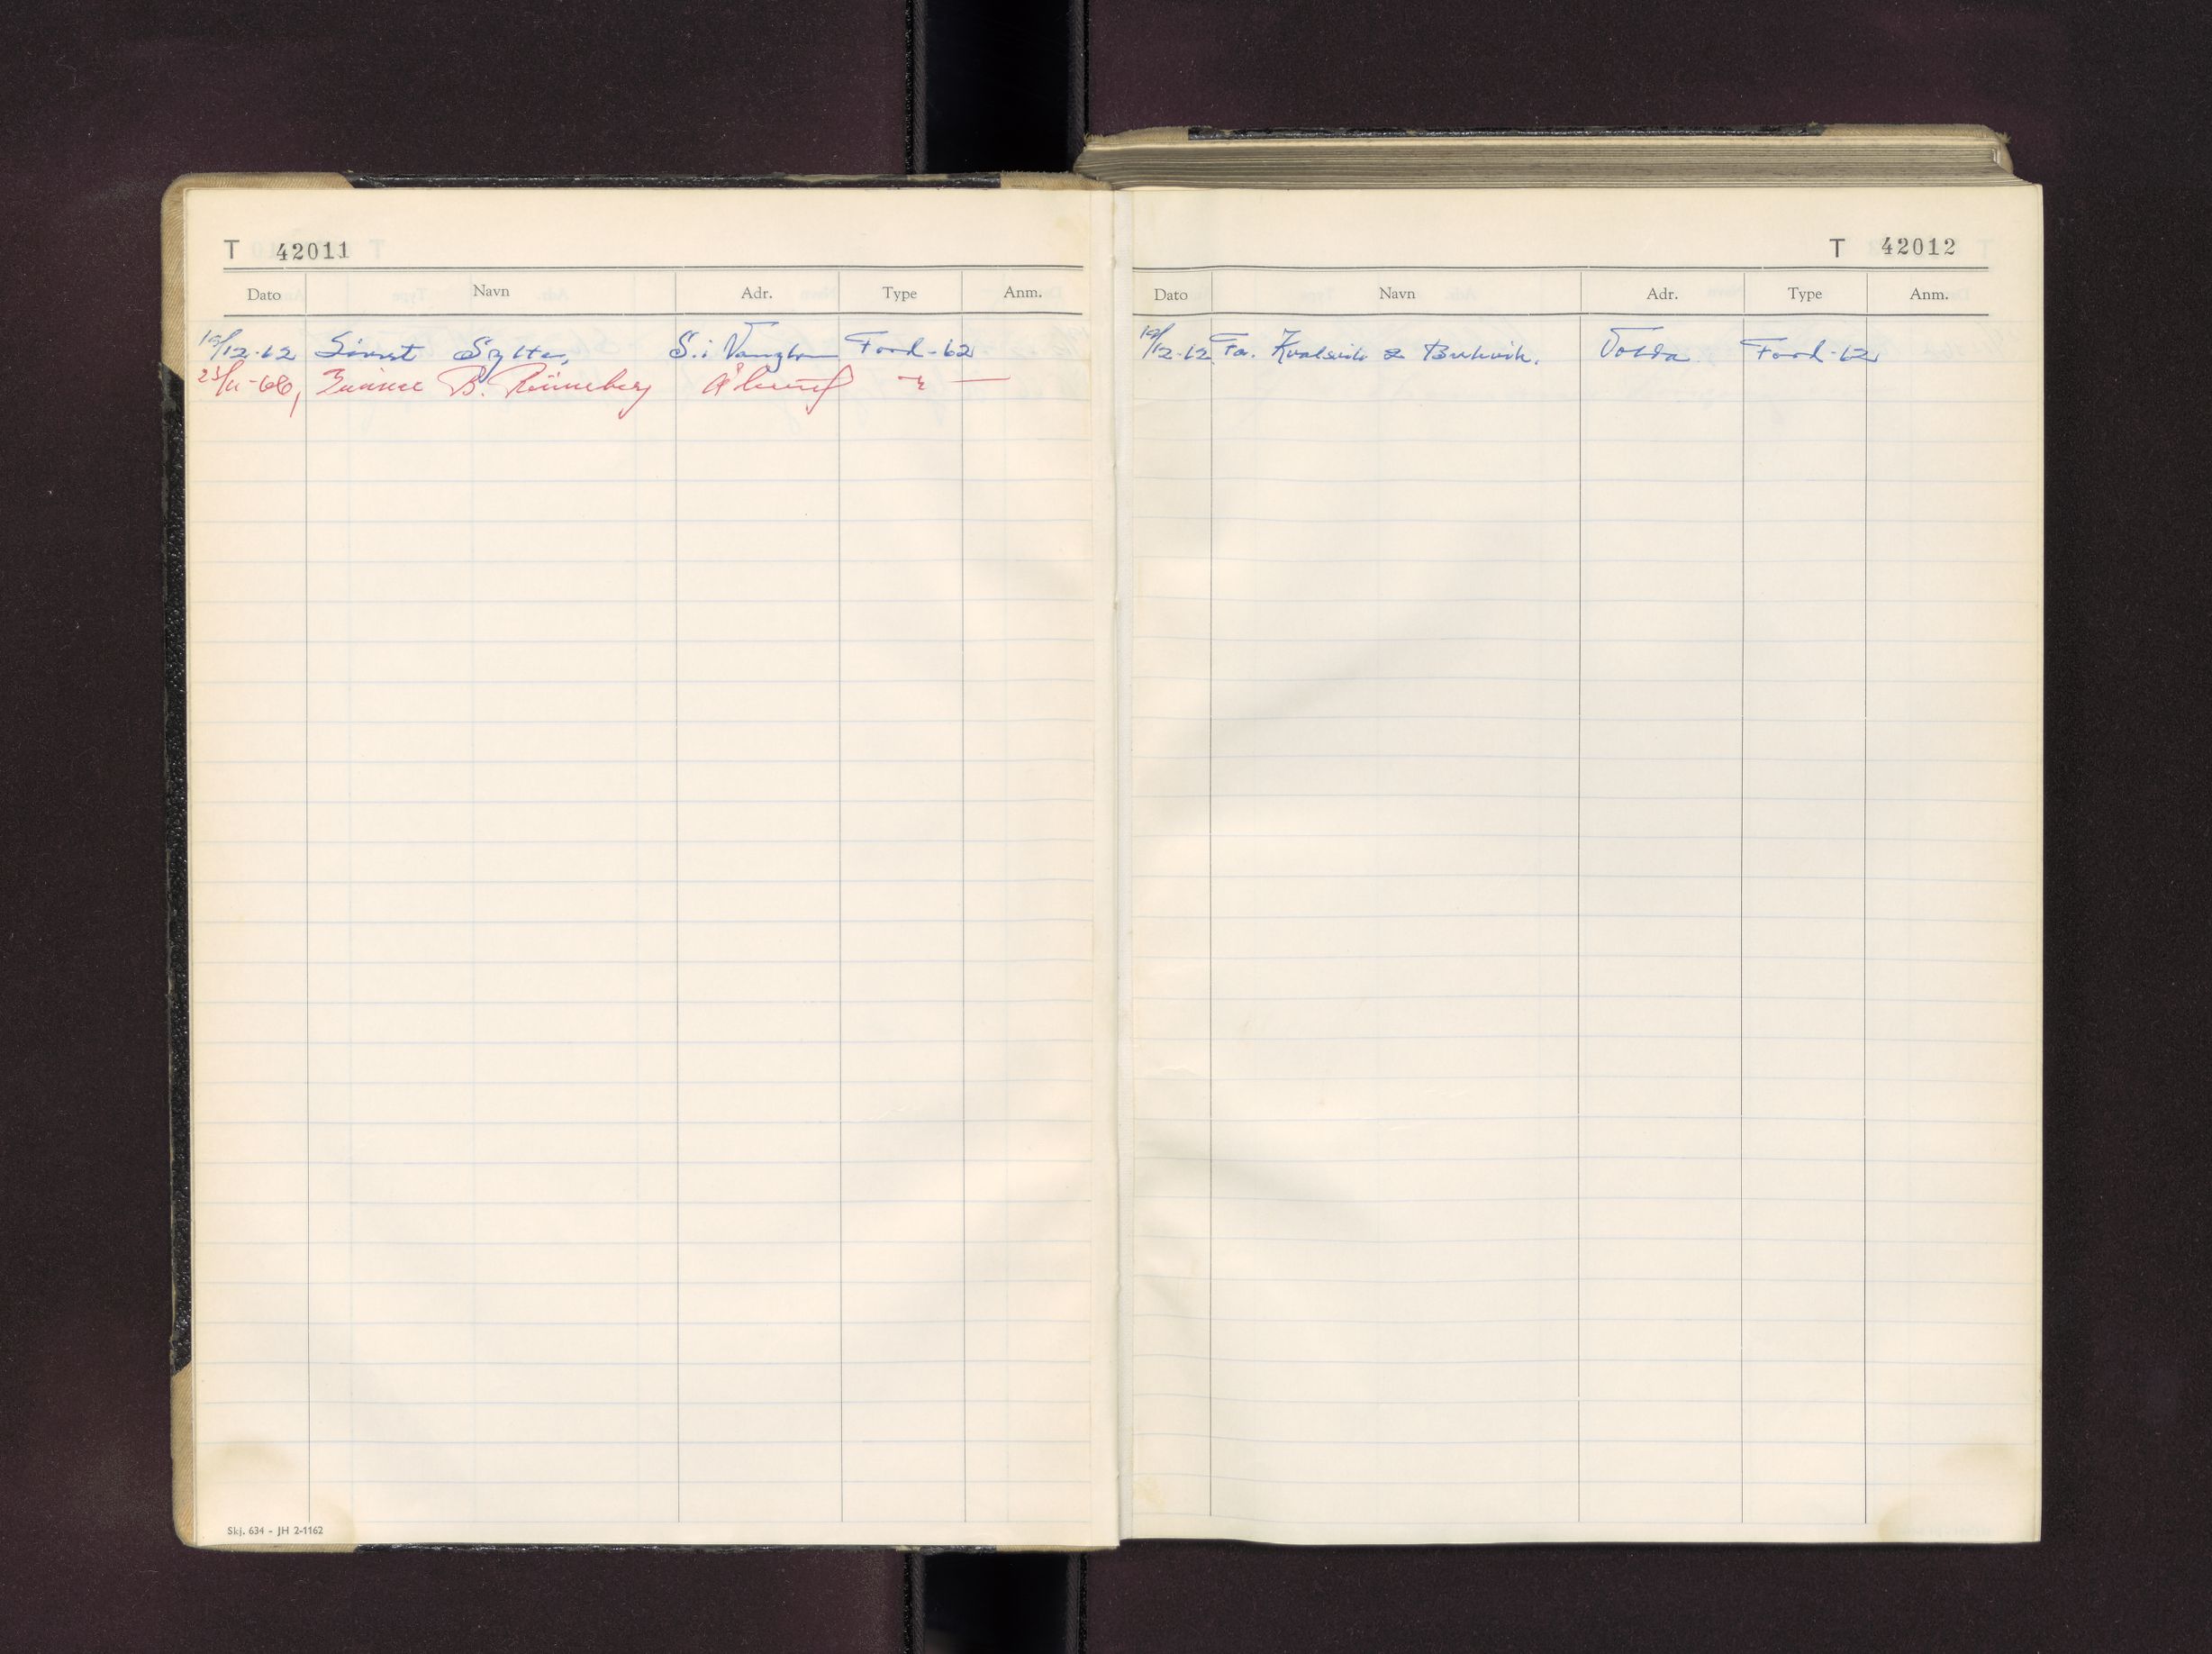 T 42011
Dato Navn Adr. Type Anm.
19/12-62 Sivert Sylte, S. i Vanylven Ford-62
23/11-66, B. Rönneberg Ålesund
Skj. 634 - JH 2-1162
T 42012
Dato Navn Adr. Type Anm.
19/12-62 Fa. Kvalsvik & Brekvik. Volda Ford-62